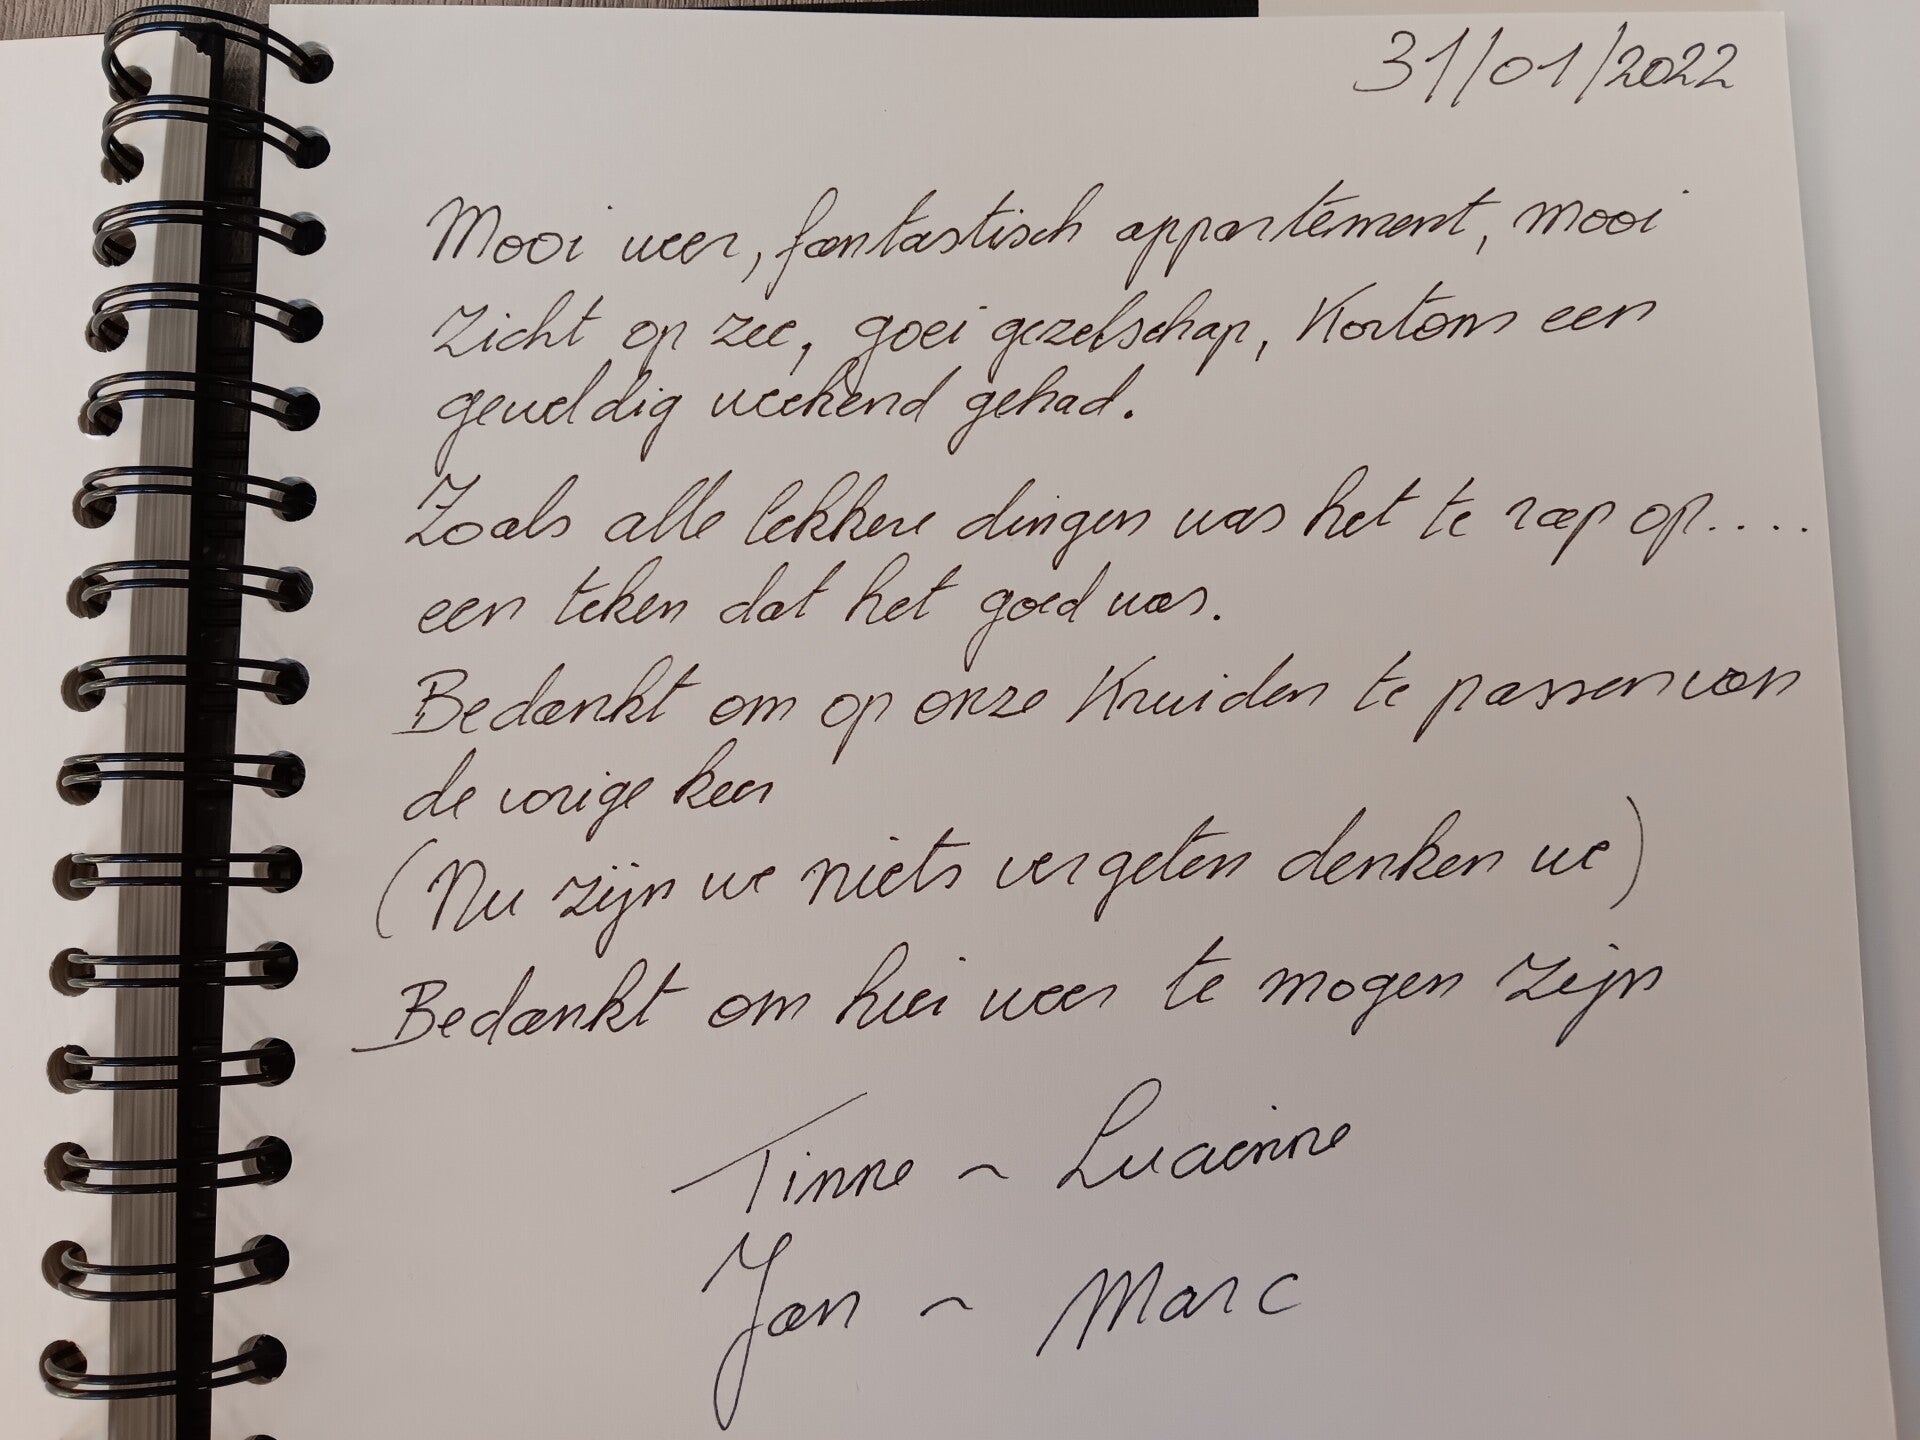 31/01/2022
Mooi weer, fantastisch appartement, mooi
Zicht op zee, goei gezelschap, Kortom een
geweldig weekend gehad.
Zoals alle lekkere dingen was het te rap op....
een teken dat het goed was.
Bedankt om op onze Kruiden te passen van
de vorige keer
(Nu zijn we niets vergeten denken we)
Bedankt om hier weer te mogen zijn
Tinne ~ Lucienne
Jan ~ Marc